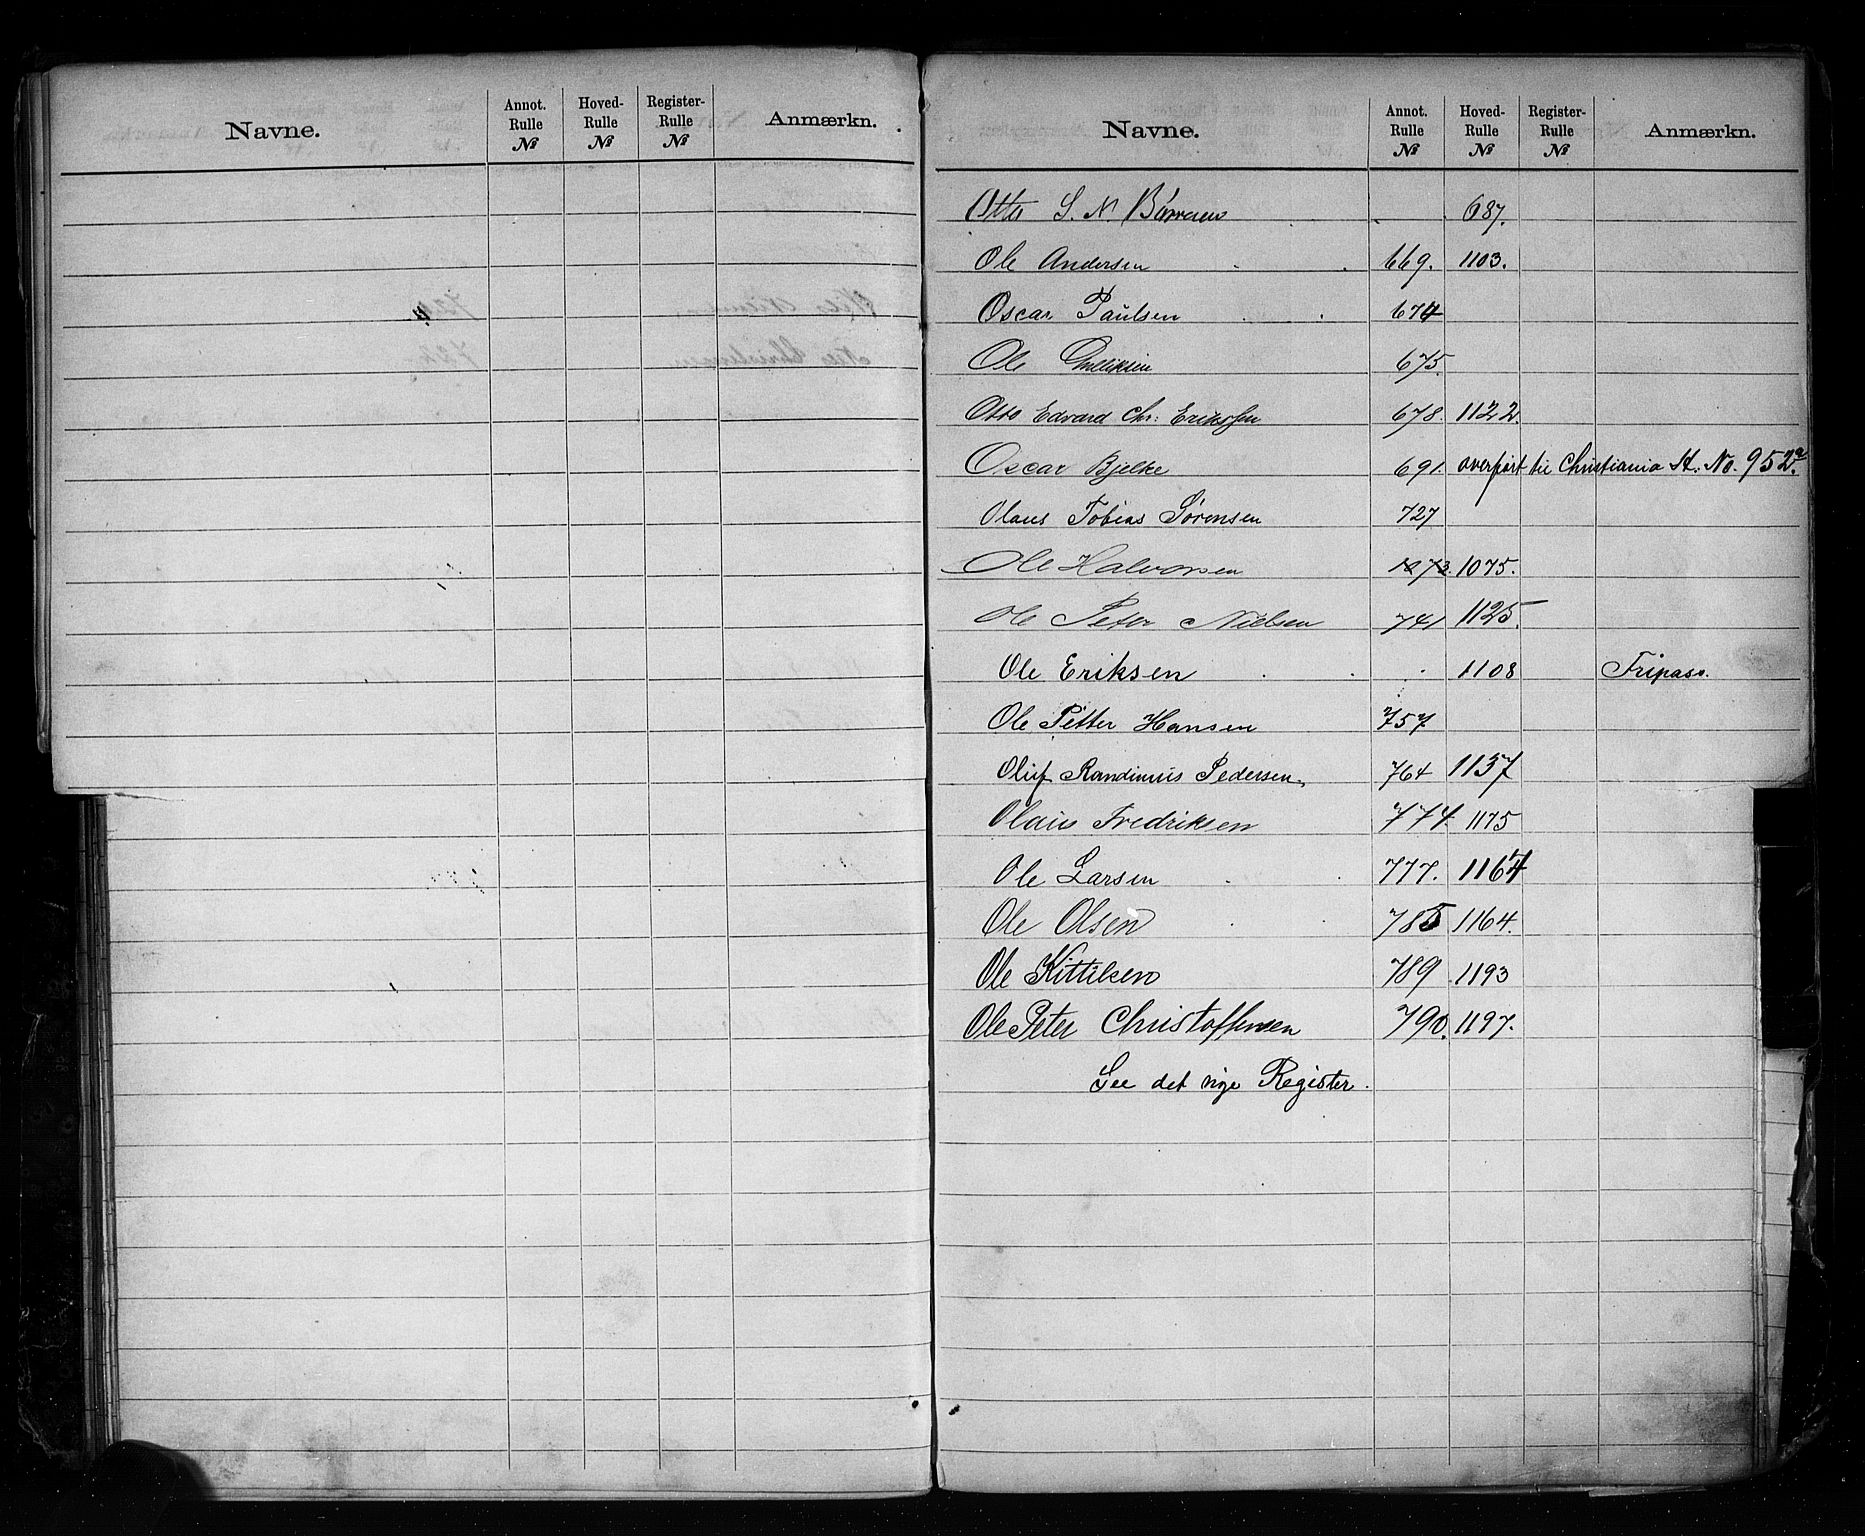 Navne. Annot. Rulle № Hoved-Rulle № Register-Rulle № Anmærkn.
Navne. Annot. Rulle № Hoved-Rulle № Register-Rulle № Anmærkn.
Otto S. N. 687.
Ole Andersen 669. 1103.
Oscar Paulsen 674
Ole Gulliksen 675.
Otto Edvard Chr: Erikssen 678. 1122.
Oscar Bjelke 691. overført til Christiania St: No. 952a.
Olaus Tobias Sørensen 727
Ole Halvorsen 1073. 1075.
Ole Peter Nielsen 741 1125.
Ole Eriksen 1108 Fripass.
Ole Petter Hansen 757
Oluf Randinius Pedersen. 764 1137
Olaus Fredriksen 774. 1175
Ole Larsen 777. 1164
Ole Olsen 785 1164.
Ole Kittilsen 789 1193
Ole Peter Christoffersen 790. 1197.
See det nye Register.